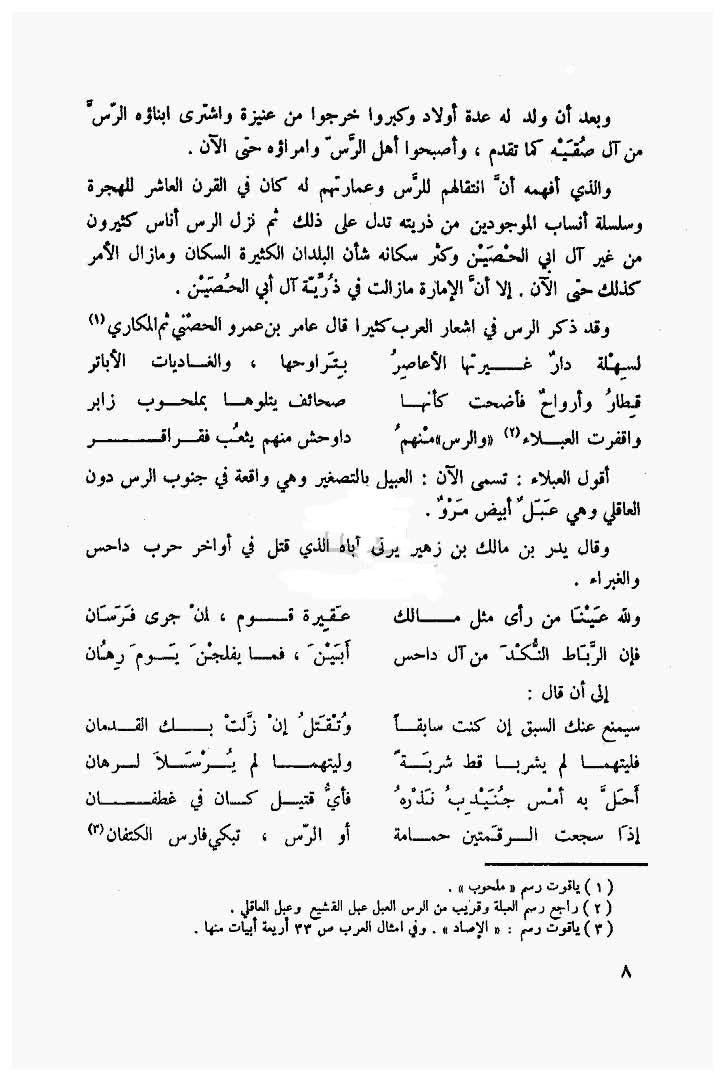 وبعد أن ولد له عدة أولاد وكبروا خرجوا من عنيزة واشترى ابناؤه الرّسَّ
من آل صُقَيْه كما تقدم ، وأصبحوا أهل الرَّسّ وامراؤه حتى الآن .
والذي أفهمه أنَّ انتقالهم للرَّس وعمارتهم له كان في القرن العاشر للهجرة
وسلسلة أنساب الموجودين من ذريته تدل على ذلك ثم نزل الرس أناس كثيرون
من غير آل ابي الحصَيْن وكثر سكانه شأن البلدان الكثيرة السكان ومازال الأمر
كذلك حتى الآن . إلا أنَّ الإمارة مازالت في ذُرِّيّة آل أبي الحُصَيْن .
وقد ذكر الرس في اشعار العرب كثيرا قال عامر بن عمرو الحصْني ثم المكاري (١)
لسهْلة دارٌ غيرتها الأعاصرُ بتراوحها ، والغاديات الأباتر
قطارُ وأرواحُ فأضحت كأنها صحائف يتلوها بملحوب زابر
واقفرت العبلاء (٢) «والرس» منهمُ داوحش منهم يثعُب فقراقر
أقول العبلاء : تسمى الآن : العبيل بالتصغير وهي واقعة في جنوب الرس دون
العاقلي وهي عَبَلٌ أبيض مَرْوٌ .
وقال بدر بن مالك بن زهير يرثي آباه الذي قتل في أواخر حرب داحس
والغبراء .
ولله عَيْنَا من رأى مثل مالك عقيرة قوم ، انْ جرى فرَسَان
فإن الرَّباط النُّكْدَ من آل داحس أبَيْنَ ، فما يفلجْنَ يَومَ رهَان
إلى أن قال :
سيمنع عنك السبق إن كنت سابقاً وتُقْتَلُ إنْ زَلَّتْ بك القدمان
فليتهما لم يشربا قط شربَةً وليتهما لم يُرْسَلاَ لرهان
أحَلَّ به أمْس جُنَيْدِبُ نَذْرهُ فأيُّ قتيل كان في غطفان
إذا سجعت الرقمتين حمامة أو الرّس ، تبكي فارس الكتفان (٣)
( ١ ) ياقوت رسم « ملحوب » .
( ٢ ) راجع رسم العبلة وقريب من الرس العبل عبل القشيع وعبل العاقلي .
( ٣ ) ياقوت رسم : « الإصاد » . وفي امثال العرب ص ٣٣ أربعة أبيات منها .
٨